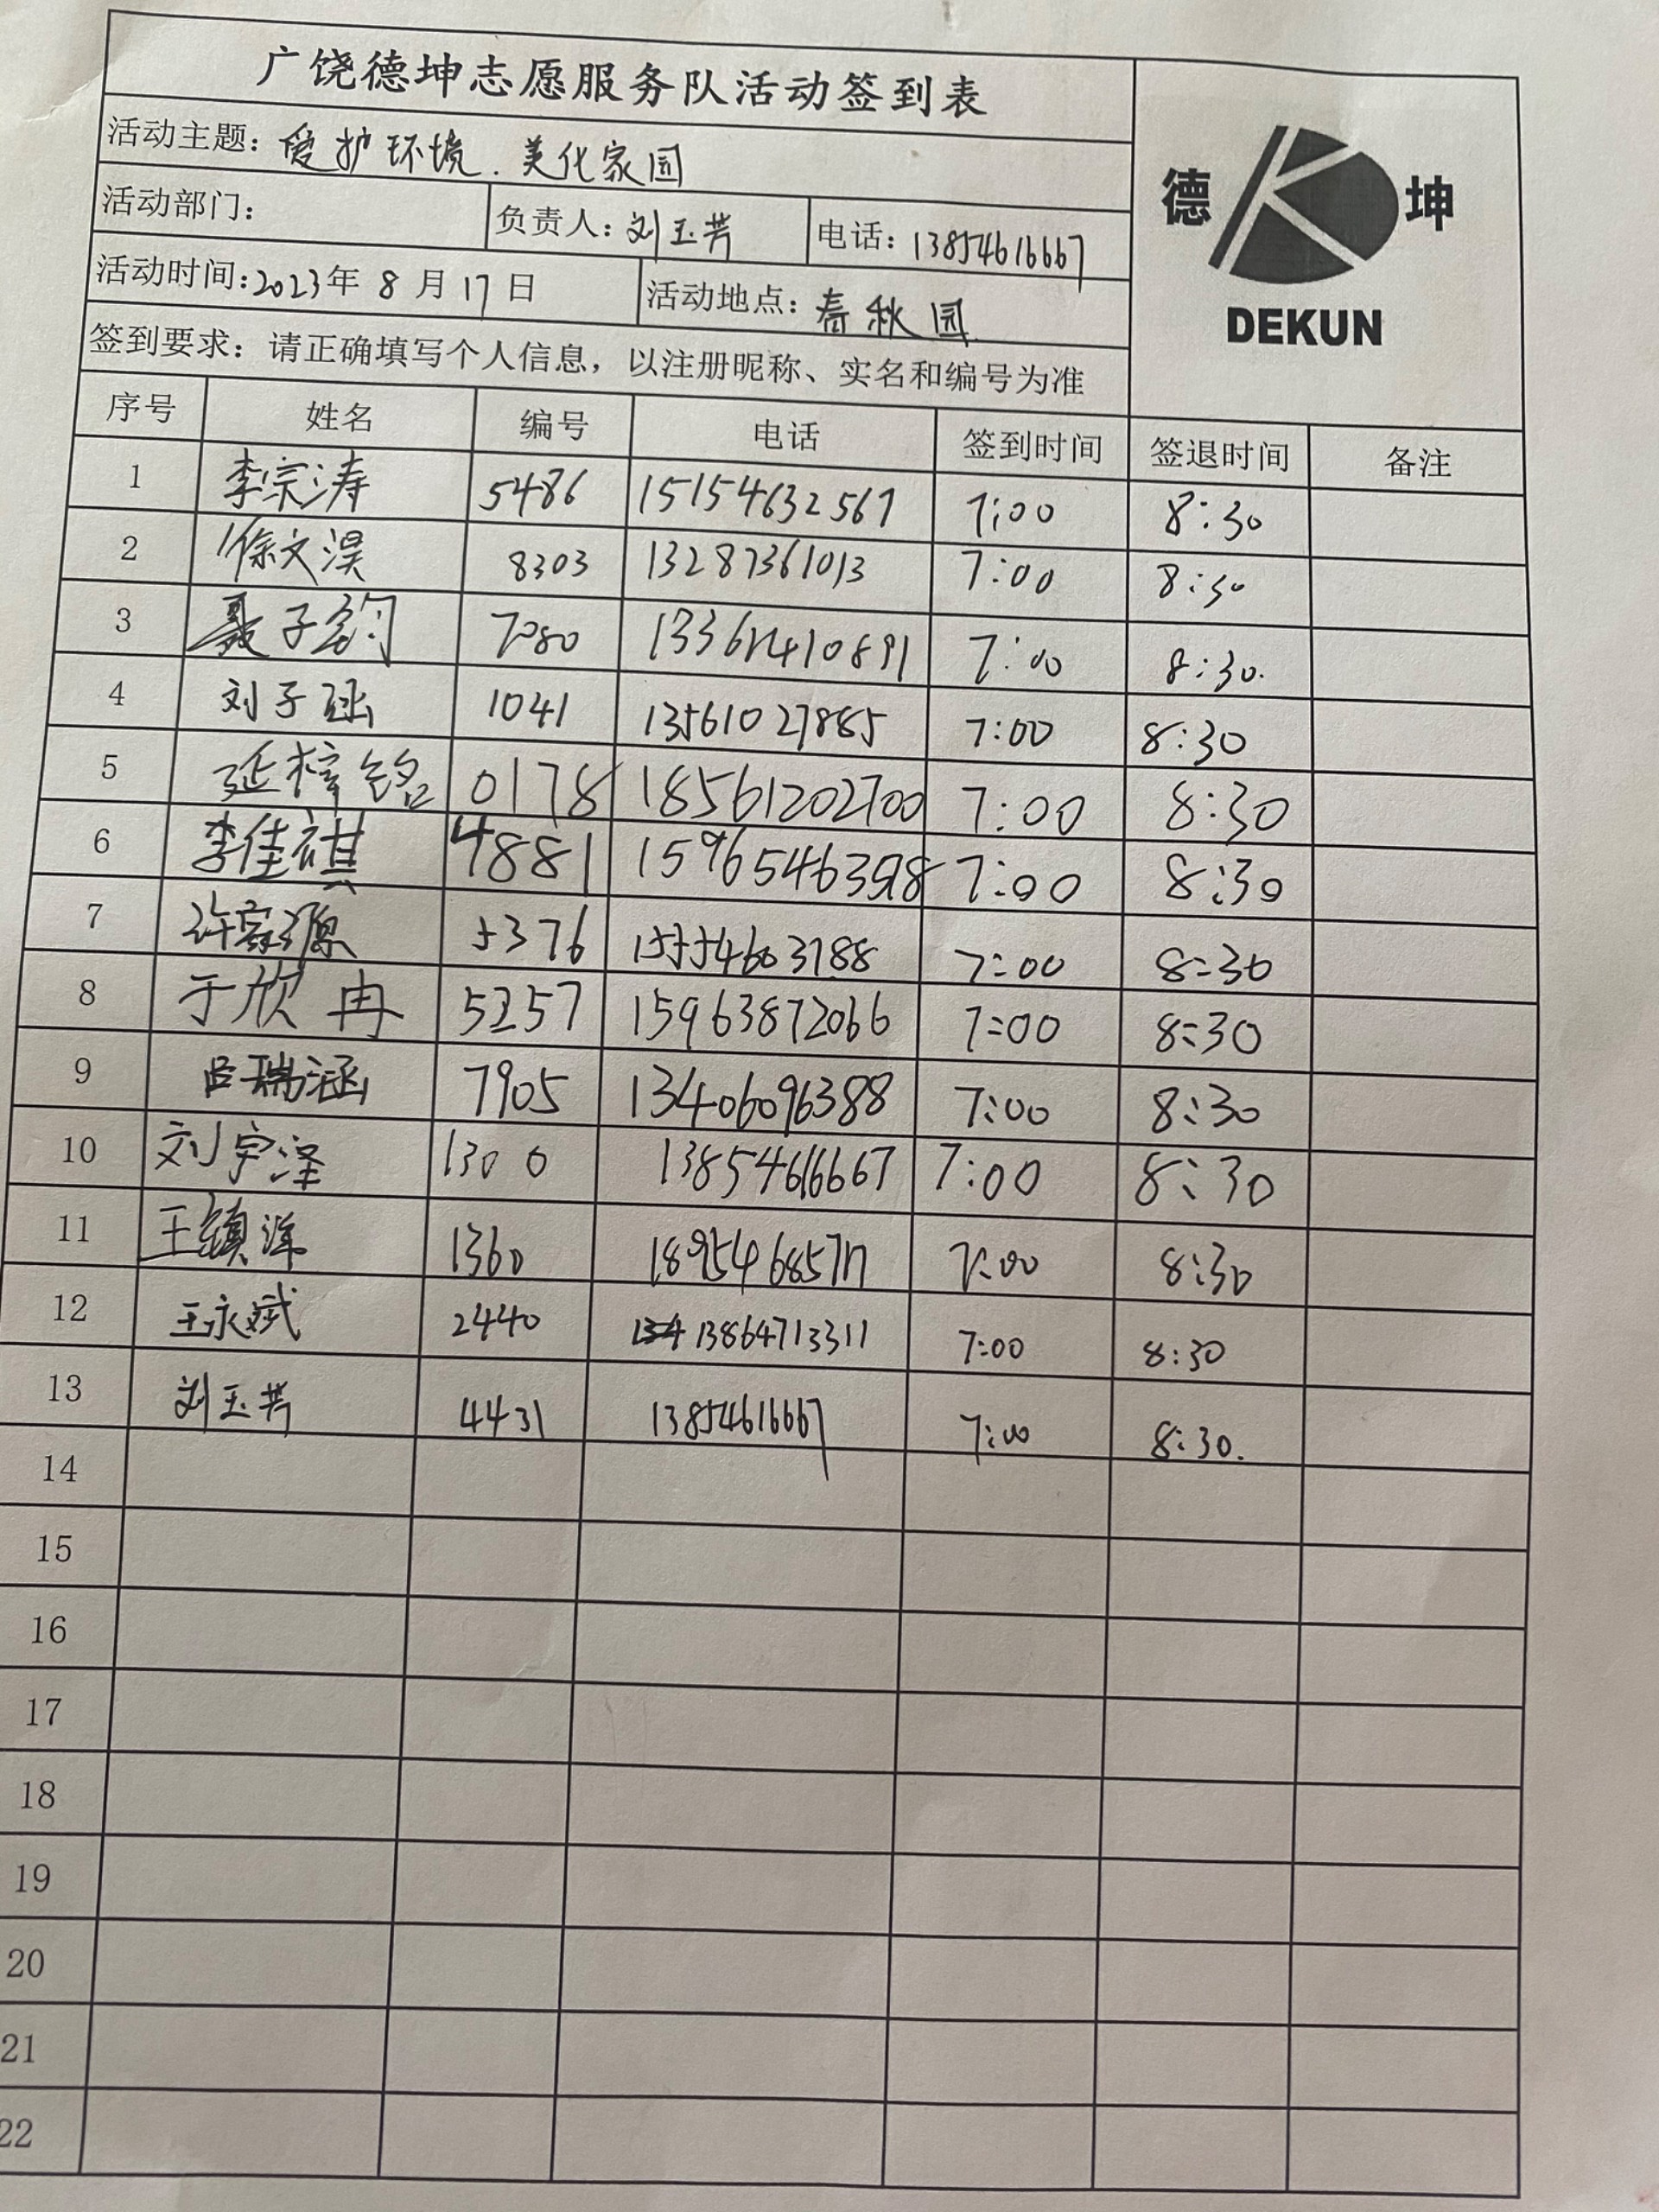 广饶德坤志愿服务队活动签到表
活动主题：爱护环境.美化家园
德 坤
DEKUN
活动部门： 负责人：刘玉芳 电话：13854616667
活动时间：2023年 8 月 17 日 活动地点：春秋园
签到要求：请正确填写个人信息，以注册昵称、实名和编号为准
序号 姓名 编号 电话 签到时间 签退时间 备注
1 李宗涛 5486 15154632567 7:00 8:30
2 徐文淏 8303 13287361013 7:00 8:30
3 聂子钧 7080 7:00 8:30.
4 刘子函 1041 13561027885 7:00 8:30
5 延梓铭 0178 18561202700 7:00 8:30
6 李佳祺 4881 7:00 8:30
7 许家源 5376 15554603788 7:00 8:30
8 于欣冉 5257 15963872066 7:00 8:30
9 吕瑞涵 7905 13406096388 7:00 8:30
10 刘宇泽 1300 13854616667 7:00 8:30
11 王镇洋 1360 7:00 8:30
12 王永斌 2440 13864713311 7:00 8:30
13 刘玉芳 4431 13854616667 7:00 8:30.
14
15
16
17
18
19
20
21
22